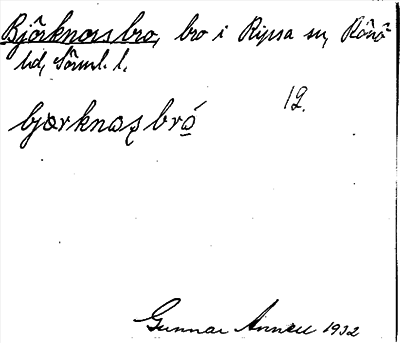 Björknäsbro, bro i Ripsa sn, Rönö
hd, Södml. l.
12.
bjœrknaʂbró
Gunnar Annell 1932